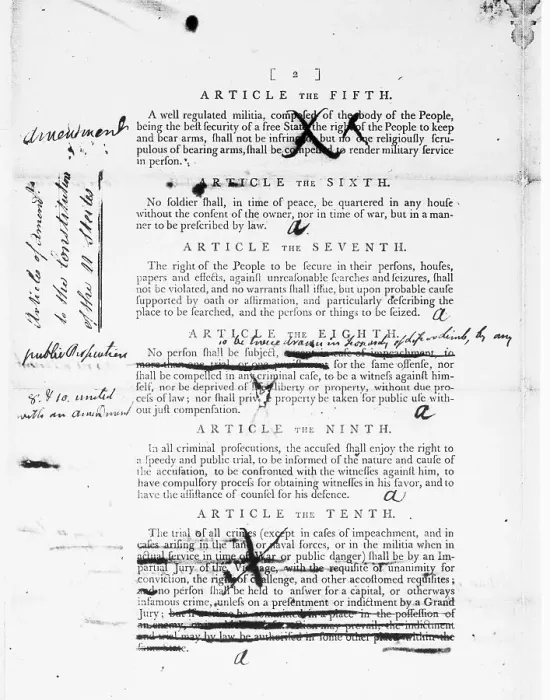 [ 2 ]
ARTICLE THE FIFTH.
A well regulated militia, composed of the body of the People,
being the best security of a free State, the right of the People to keep
and bear arms, shall not be infringed, but no one religiously scru-
pulous of bearing arms, shall be compelled to render military service
in person.
amendment
ARTICLE THE SIXTH.
No soldier shall, in time of peace, be quartered in any house
without the consent of the owner, nor in time of war, but in a man-
ner to be prescribed by law.
a
Articles of Amendts
to the Constitution
of the U States
ARTICLE THE SEVENTH.
The right of the People to be secure in their persons, houses,
papers and effects, against unreasonable searches and seizures, shall
not be violated, and no warrants shall issue, but upon probable cause
supported by oath or affirmation, and particularly describing the
place to be searched, and the persons or things to be seized.
a
ARTICLE THE EIGHTH.
to be twice by any
public Prosecution
No person shall be subject, except in case of impeachment, to
more than one trial, or one for the same offense, nor
shall be compelled in any criminal case, to be a witness against him-
self, nor be deprived of liberty or property, without due pro-
cess of law; nor shall private property be taken for public use with-
out just compensation.
a
8. & 10. united
with an amendment
ARTICLE THE NINTH.
In all criminal prosecutions, the accused shall enjoy the right to
a speedy and public trial, to be informed of the nature and cause of
the accusation, to be confronted with the witnesses against him, to
have compulsory process for obtaining witnesses in his favor, and to
have the assistance of counsel for his defence.
a
ARTICLE THE TENTH.
The trial of all crimes (except in cases of impeachment, and in
cases arising in the land or naval forces, or in the militia when in
actual service in time of War or public danger) shall be by an Im-
partial Jury of the Vicinage, with the requisite of unanimity for
conviction, the right of challenge, and other accostomed requisites;
and no person shall be held to answer for a capital, or otherways
infamous crime, unless on a presentment or indictment by a Grand
Jury; but if a crime be committed in a place in the possession of
an enemy, may prevail, the indictment
and trial may by law be authorised in some other place within the
same State.
a